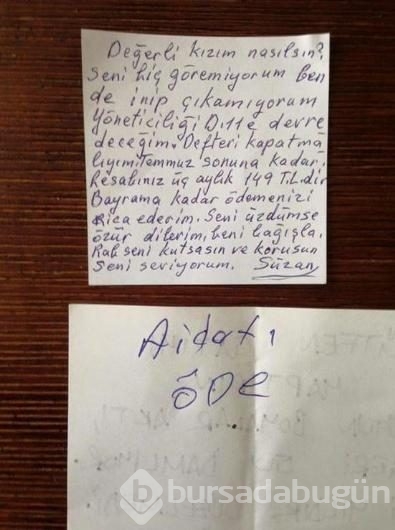 Değerli kızım nasılsın?
Seni hiç göremiyorum ben
de inip çıkamıyorum
Yöneticiliği D.11 e devre
deceğim. Defteri kapatma
lıyım. Temmuz sonuna kadar.
Hesabınız üç aylık 149 TL.dir
Bayrama kadar ödemenizi
rica ederim. Seni üzdümse
özür dilerim, beni bağışla.
Rab seni kutsasın ve korusun
Seni seviyorum. Süzan
Aidatı
ÖDe
bursadabugün